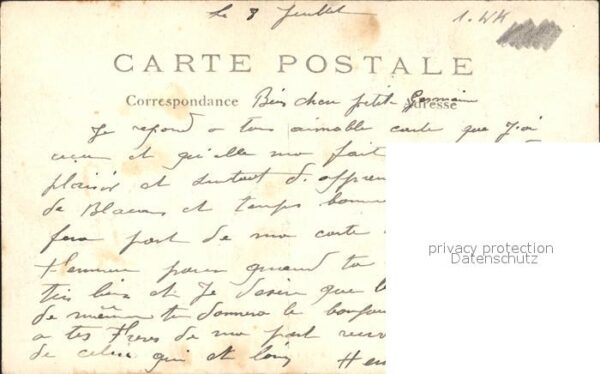 Le 8 Juillet
1. WK
CARTE POSTALE
Correspondance Adresse
Bien cher petit Germain
Je repond a tous aimable carte que J'ai
recue et qu'elle ma fait
plaisir et surtout d'appren
de et temps
fera part de ma carte
quand tu
tres bien et Je desire que
de même tu donnera le bonjour
a tes Freres de ma part
de celui qui et loin Hen
privacy protection
Datenschutz